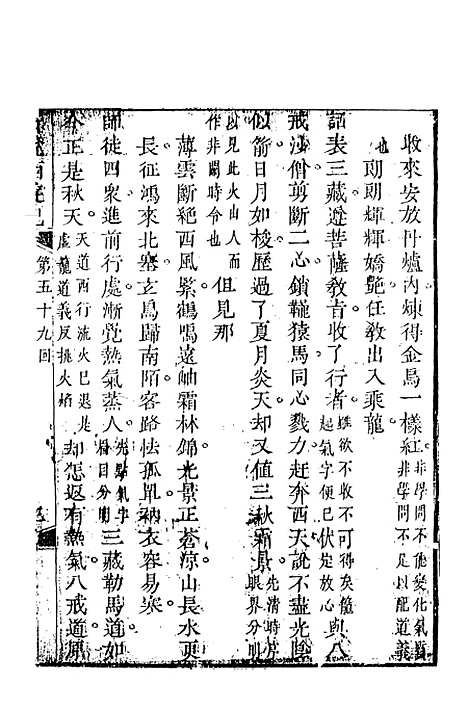 收來安放丹爐内煉得金烏一樣紅非學問不能變化氣質非學問不足以配道義
也朝朝輝輝嬌艷任敎出入乘龍
話表三藏遵菩薩敎旨收了行者雖欲不收不可得矣僅起氣字便已伏定放心與八
戒沙僧剪斷二心鎖鞴猿馬同心戮力赶奔西天說不盡光陰
似箭日月如梭歷過了夏月炎天却又值三秋霜景先清時序眼界分明
以見此火山人而作非關時令也但見那
薄雲斷絕西風緊鶴鳴遠岫霜林錦光景正蒼凉山長水更
長征鴻來北塞玄鳥歸南陌客路怯孤單衲衣容易寒
師徒四衆進前行處漸覺熱氣蒸人先點氣字眉目分明三藏勒馬道如
今正是秋天天道西行流火已退是虚龍道義反挑火焰却怎返有熱氣八戒道原
西遊記
第五十九回